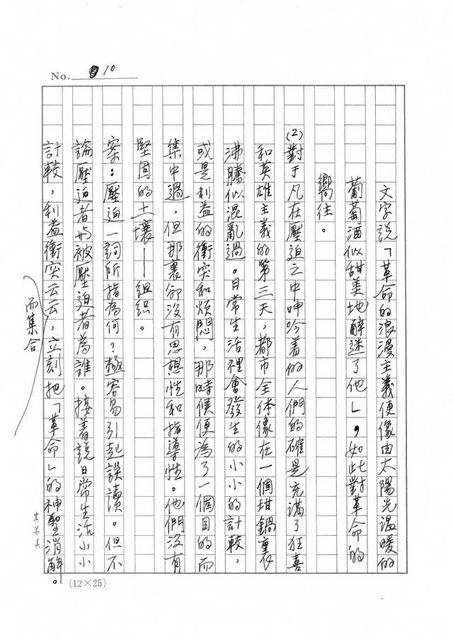 No. 10
文字說「革命的浪漫主義便像由太陽光溫暖的
葡萄酒似甜美地醉迷了他」，如此對革命的
嚮往。
(2)對于凡在壓迫之中呻吟着的人們的確是充滿了狂喜
和英雄主義的第三天，都市全体像在一個坩鍋裏
沸騰似混亂過。日常生活裡會發生的小小的計較，
或是利益的衝突和煩悶，那時候便為了一個目的而
集中過，但那裏卻沒有思想性和指導性。他們沒有
堅固的土壤——組織。
案：壓迫一詞所指為何？極容易引起誤讀。但不
論壓迫者與被壓迫者為誰。接着說日常生活小小
計較，利益衝突云云，立刻把「革命」的神聖消解。
而集合
(12×25)